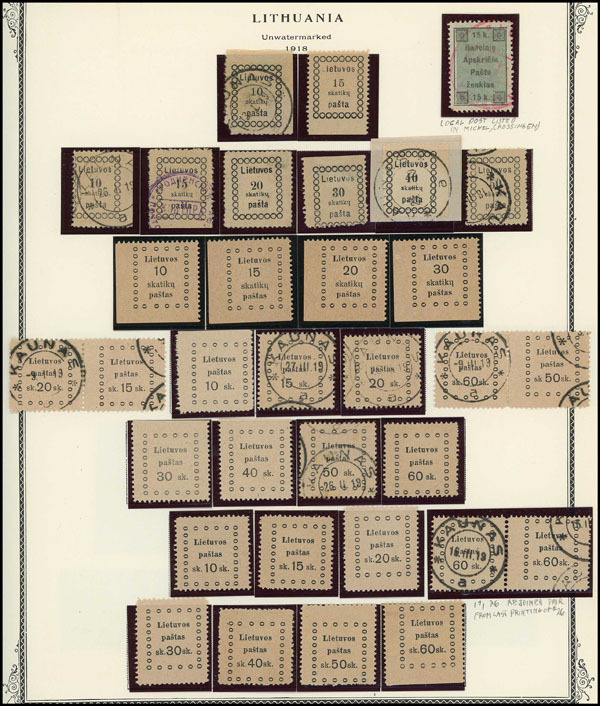 LITHUANIA
Unwatermarked
1918
Lietuvos
10
skatikų
pašta
Lietuvos
15
skatikų
pašta
15 k.
Apskričio
Pašto
ženklas
15 k.
LOCAL POST LISTED
IN MICHEL,
Lietuvos
10
skatikų
pašta
Lietuvos
15
skatikų
pašta
Lietuvos
20
skatikų
pašta
Lietuvos
30
skatikų
pašta
Lietuvos
40
skatikų
pašta
Lietuvos
skatikų
pašta
Lietuvos
10
skatikų
paštas
Lietuvos
15
skatikų
paštas
Lietuvos
20
skatikų
paštas
Lietuvos
30
skatikų
paštas
KAUNAS
Lietuvos
paštas
sk. 20 sk.
Lietuvos
paštas
sk. 15 sk.
Lietuvos
paštas
10 sk.
Lietuvos
paštas
15 sk.
27.III.19
Lietuvos
paštas
20 sk.
Lietuvos
paštas
60 sk.
Lietuvos
paštas
50 sk.
Lietuvos
paštas
30 sk.
Lietuvos
paštas
40 sk.
Lietuvos
paštas
50 sk.
KAUNAS
Lietuvos
paštas
60 sk.
Lietuvos
paštas
sk. 10 sk.
Lietuvos
paštas
sk. 15 sk.
Lietuvos
paštas
sk. 20 sk.
KAUNAS
16.III.19
60 sk.
Lietuvos
paštas
sk. 60 sk.
FROM LAST PRINTING OF
Lietuvos
paštas
sk. 30 sk.
Lietuvos
paštas
sk. 40 sk.
Lietuvos
paštas
sk. 50 sk.
Lietuvos
paštas
sk. 60 sk.